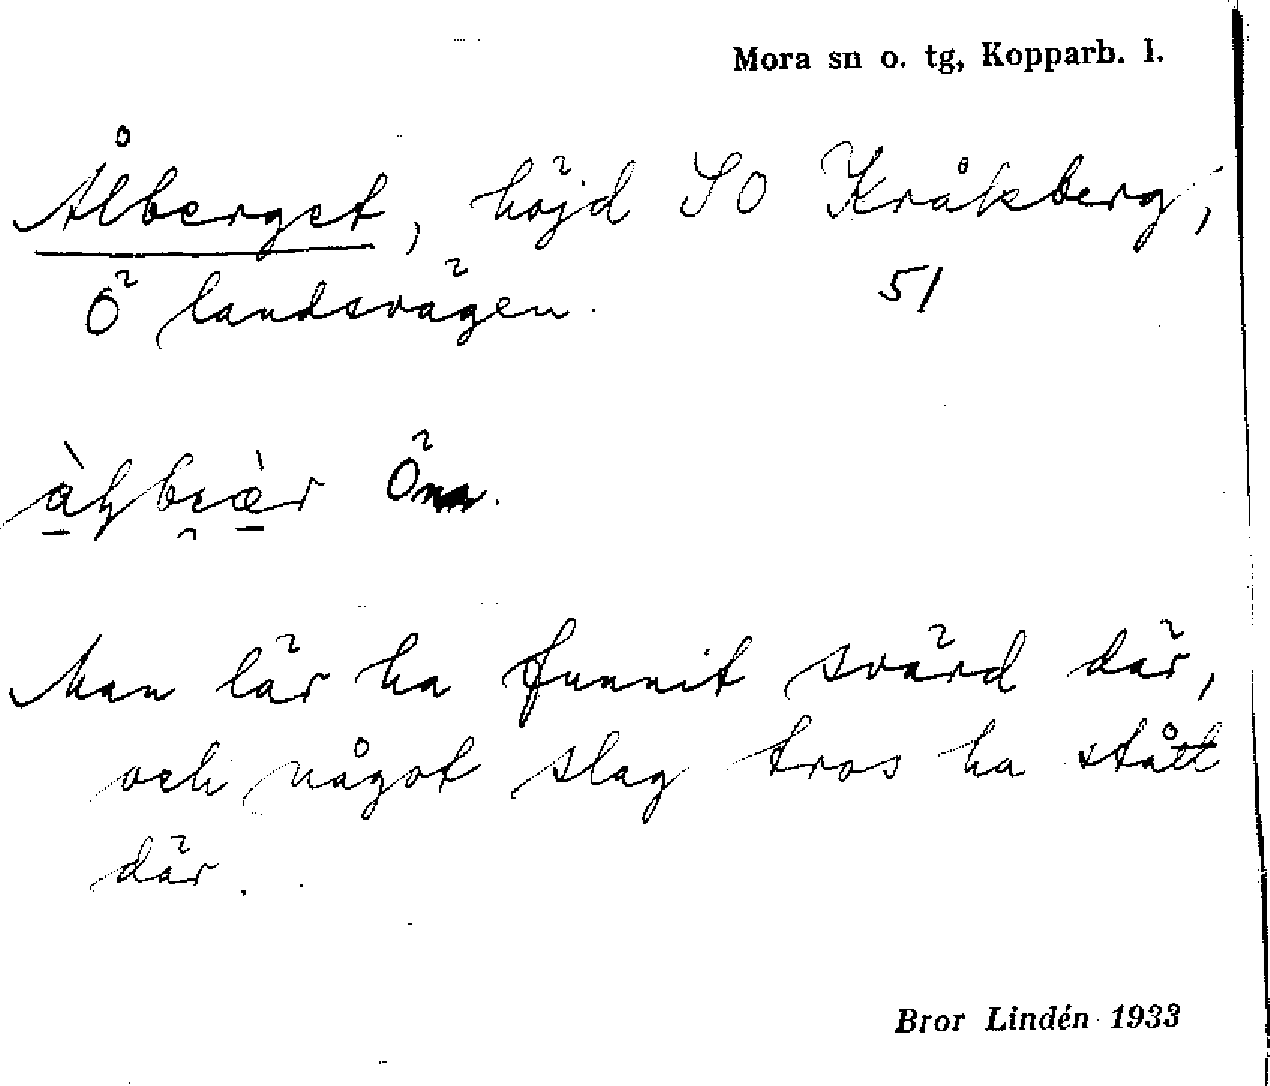 Mora sn o. tg, Kopparb. l.
Ålberget, höjd SO Kråkberg,
Ö landsvägen. 51
Man lär ha funnit svärd där,
och något slag tros ha stått
där.
Bror Lindén 1933